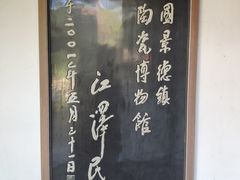 國景德鎮
陶瓷博物館
江澤民
二〇〇七年五月三十一日